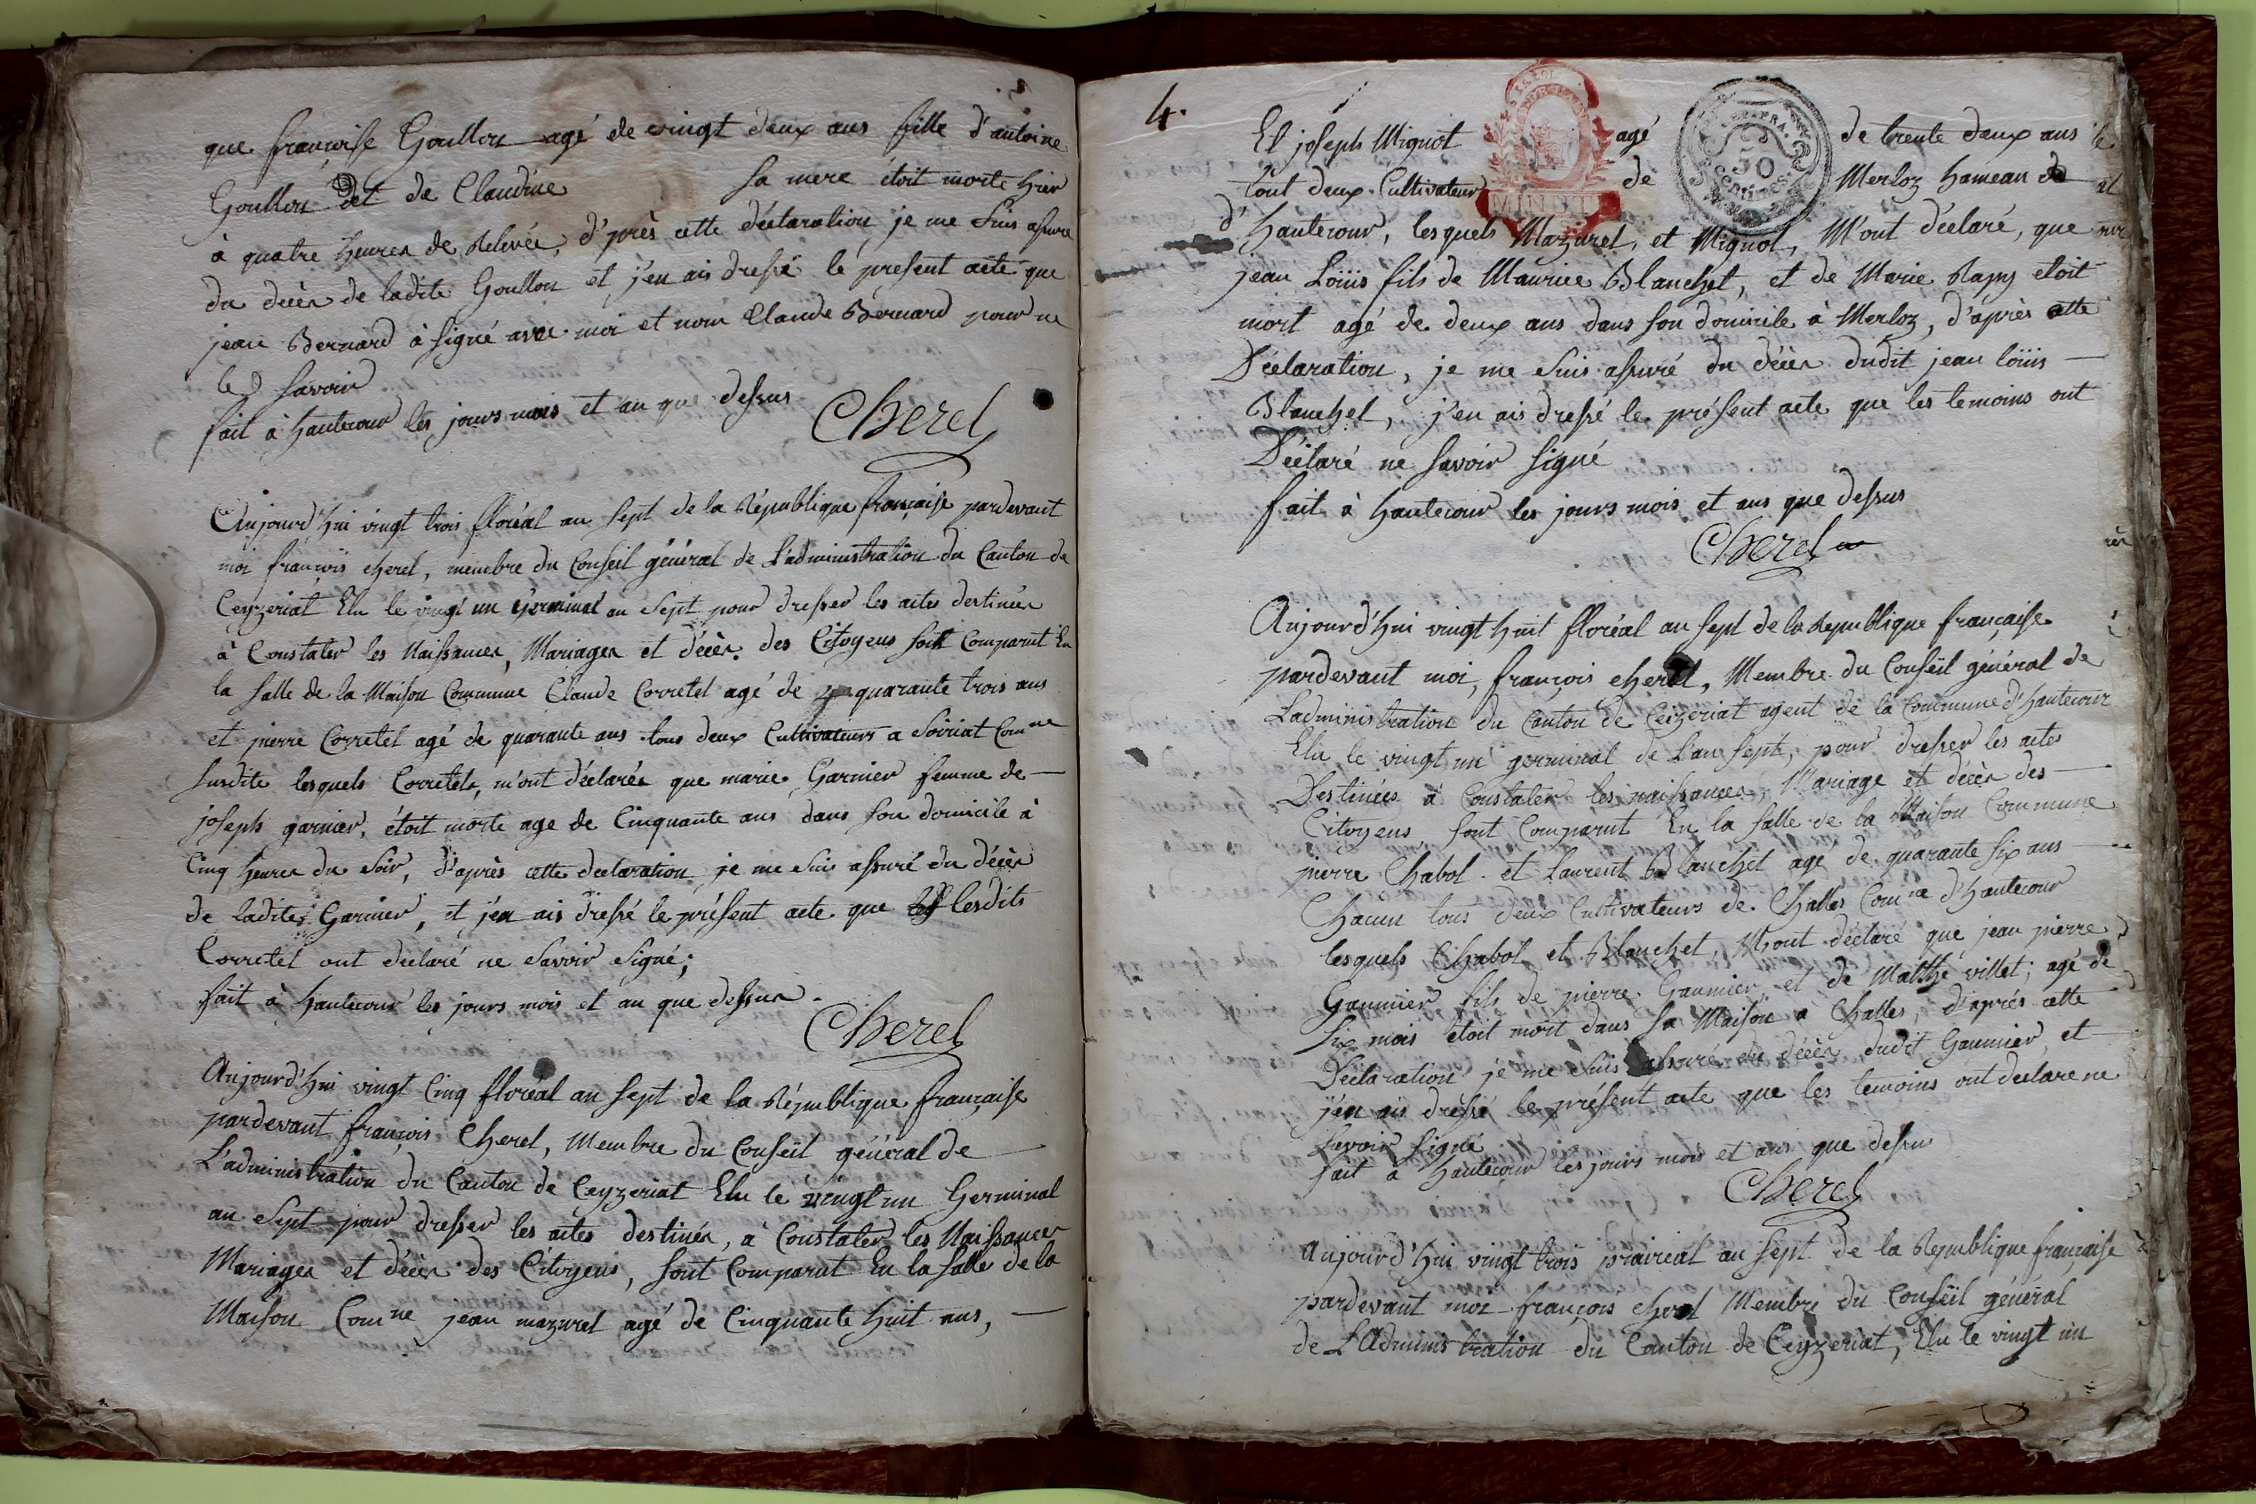 que françoise Goullon agé de vingt deux ans fille d'antoine
Goullon et de Claudine sa mere étoit morte hier
à quatre heures de Relevée, d'près cette déclaration, je me suis assuré
du decès de ladite Goullon et j'en ais dressé le present acte que
jean Bernard à signé avec moi et nom Claude Bernard pour ne
le savoir
fait à hautecour les jours mois et an que dessus
Cherel
Aujourd'hui vingt trois floréal an sept de la République française pardevant
moi françois cherel, membre du Conseil général de L'administration du Canton de
Ceyzeriat Elu le vingt un Germinal an Sept pour dresser les actes destinés
à Constater les Naissances, Mariages et décès des Citoyens sont Comparut En
la salle de la Maison Commune Claude Corretel agé de quarante trois ans
et pierre Corretel agé de quarante ans tous deux Cultivateurs a Soiriat Comne
susdite lesquels Corretels, m'ont déclarés que marie Garnier femme de
joseph garnier, étoit morte age de Cinquante ans dans son domicile à
Cinq heures du Soir, d'après cette declaration je me suis assuré du décès
de ladites Garnier, et j'en ais dressé le présent acte que lesdits
Corretel ont declaré ne savoir signé;
fait à hautecour les jours mois et an que dessus.
Cherel
Aujourd'hui vingt Cinq floréal an sept de la République française
pardevant françois Cherel, Membre du Conseil général de
L'administration du Canton de Ceyzeriat Elu le vingt un Germinal
an Sept pour dresser les actes destinés, à Constater les Naissances
Mariages et décès des Citoyens, sont Comparut En la salle de la
Maison Comne jean mazuret agé de Cinquante huit ans,
4.
Et joseph Mignot agé de trente deux ans
tout deux Cultivateur de Merloz hameau de
d'hautecour, lesquels Mazuret, et Mignot, M'ont déclaré, que
jean Loüis fils de Maurice Blanchet, et de Marie Rapy etoit
mort agé de deux ans dans son domicile à Merloz, d'après cette
Déclaration, je me suis assuré du décès dudit jean loüis
Blanchet, j'en ais dressé le présent acte que les temoins ont
Déclaré ne savoir signé
fait à hautecour les jours mois et ans que dessus
Cherel
Aujourd'hui vingt huit floréal an sept de la Republique française
pardevant moi, françois cherel, Membre du Conseil général de
L'administration du Canton de Ceizeriat agent de la Commune d'hautecour
Elu le vingt un germinal de L'an Sept, pour dresser les actes
Destinées à Constater les naissances, Mariage et décès des
Citoyens, sont Comparut En la salle de la Maison Commune
pierre Chabot et Laurent Blanchet agé de quarante six ans
Chacun tous deux Cultivateurs de Challes Comne d'hautecour
lesquels Chabot et Blanchet, M'ont déclaré que jean pierre
Gaumier fils de pierre Gaumier et de Matthé villet; agé de
Six mois étoit mort dans sa Maison à Challes, d'après cette
Déclaration je me suis assuré du décès dudit Gaumier, et
j'en ais dressé le présent acte que les temoins ont declare ne
savoir signé
fait à hautecour les jours mois et ans que dessu
Cherel
Aujourd'hui vingt trois prairéal an sept de la Republique française
pardevant moi françois cherel Membre du Conseil général
de L'Administration du Canton de Ceyzeriat, Elu le vingt un